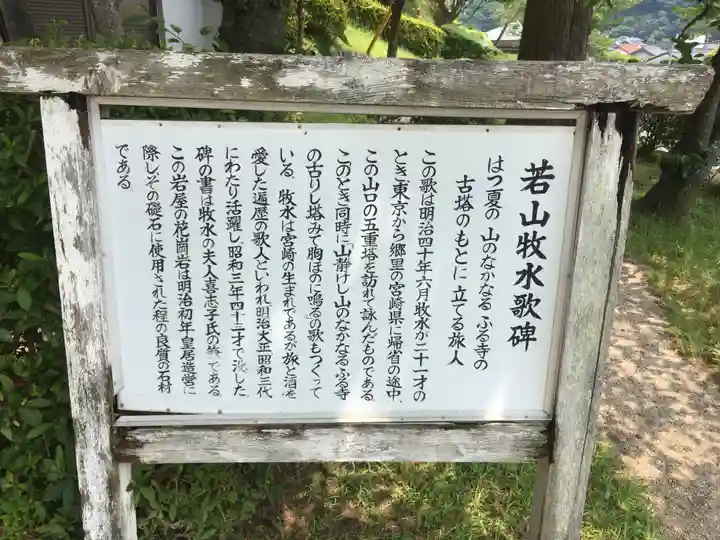 若山牧水歌碑
はつ夏の 山のなかなる ふる寺の
古塔のもとに 立てる旅人
この歌は明治四十年六月牧水が二十一才の
とき東京から郷里の宮崎県に帰省の途中、
この山口の五重塔を訪れて詠んだものである。
このとき同時に「山静けし山のなかなるふる寺
の古りし塔みて胸ほのに鳴る」の歌もつくって
いる。牧水は宮崎の生まれであるが旅と酒を
愛した遍歴の歌人といわれ明治大正昭和三代
にわたり活躍し、昭和三年四十三才で没した。
碑の書は牧水の夫人喜志子氏の筆である。
この岩屋の花崗岩は明治初年皇居造営に
際しその礎石に使用された程の良質の石材
である